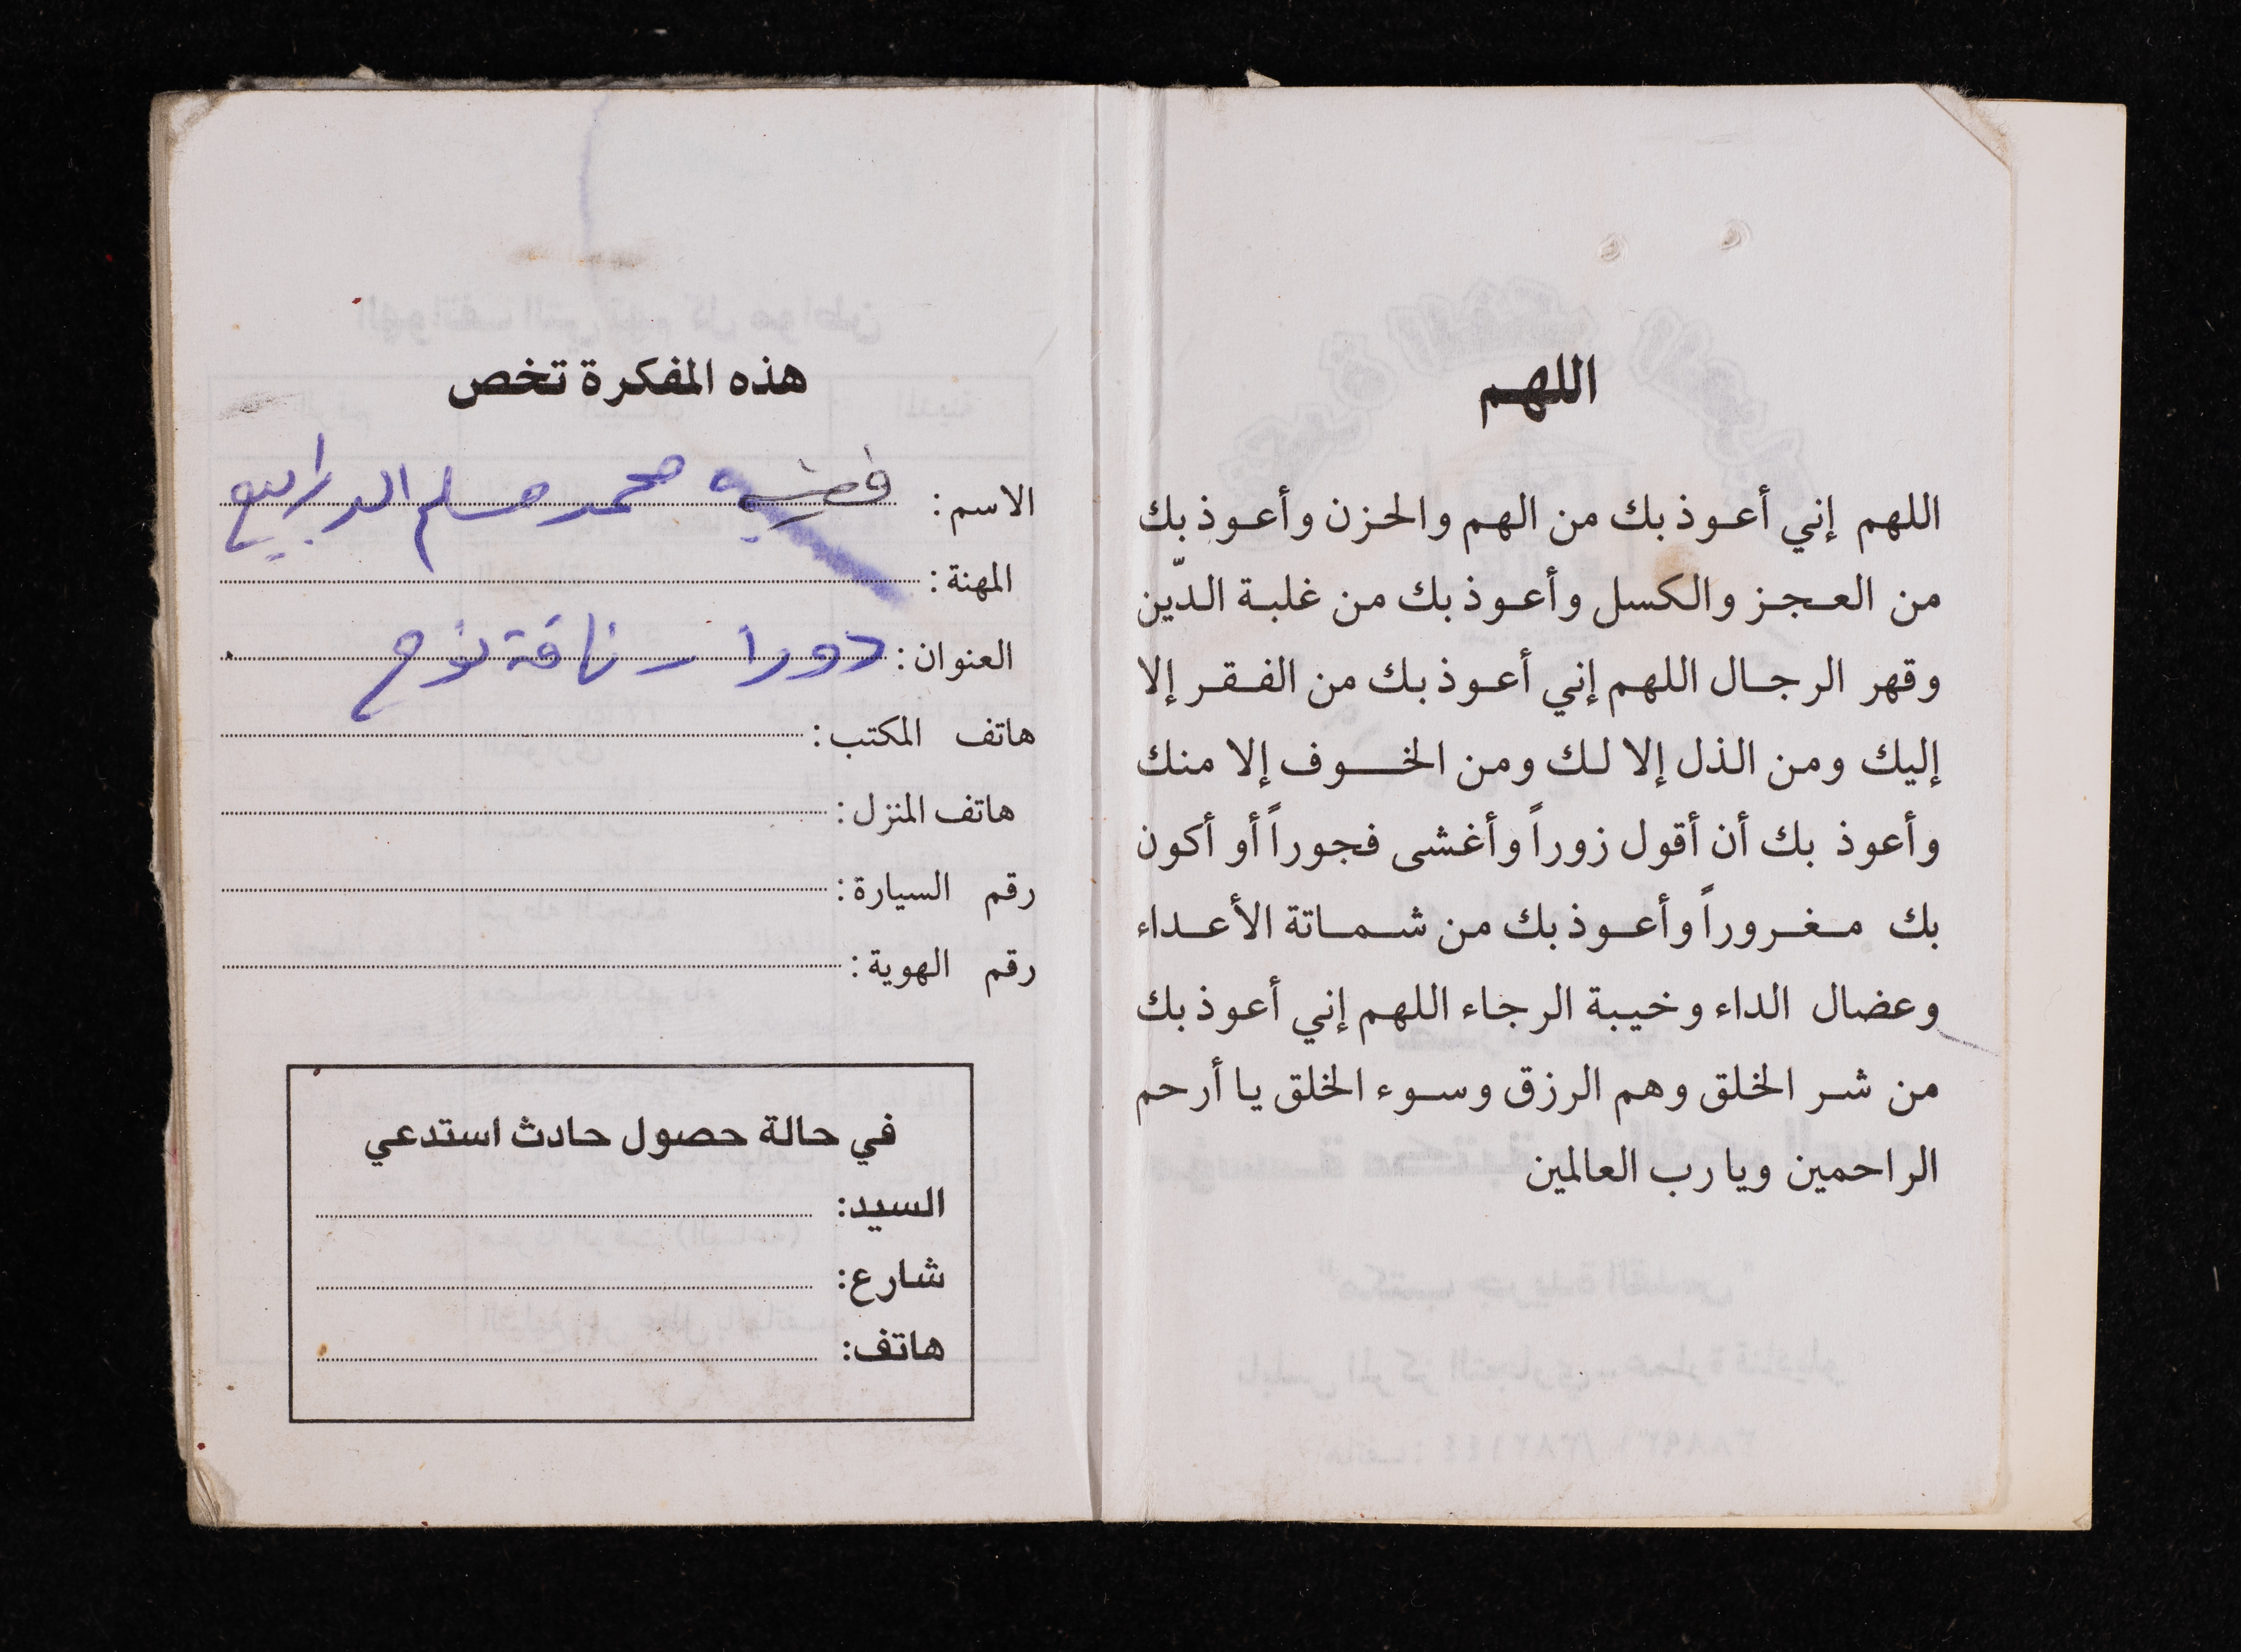 اللهم
اللهم إني أعوذ بك من الهم والحزن وأعوذ بك
من العجز والكسل وأعوذ بك من غلبة الدّين
وقهر الرجال اللهم إني أعوذ بك من الفقر إلا
إليك ومن الذل إلا لك ومن الخوف إلا منك
وأعوذ بك أن أقول زوراً وأغشى فجوراً أو أكون
بك مغروراً وأعوذ بك من شماتة الأعداء
وعضال الداء وخيبة الرجاء اللهم إني أعوذ بك
من شر الخلق وهم الرزق وسوء الخلق يا أرحم
الراحمين ويا رب العالمين
هذه المفكرة تخص
الاسم: محمد مسلم الدرابيع
المهنة:
العنوان: دورا - نافة نوح
هاتف المكتب:
هاتف المنزل:
رقم السيارة:
رقم الهوية:
في حالة حصول حادث استدعي
السيد:
شارع:
هاتف: